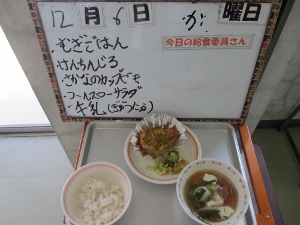 12月6日 か 曜日
今日の給食委員さん
・むぎごはん
・けんちんじる
・さかなのカップやき
・コールスローサラダ
・牛乳(ぎゅうにゅう)